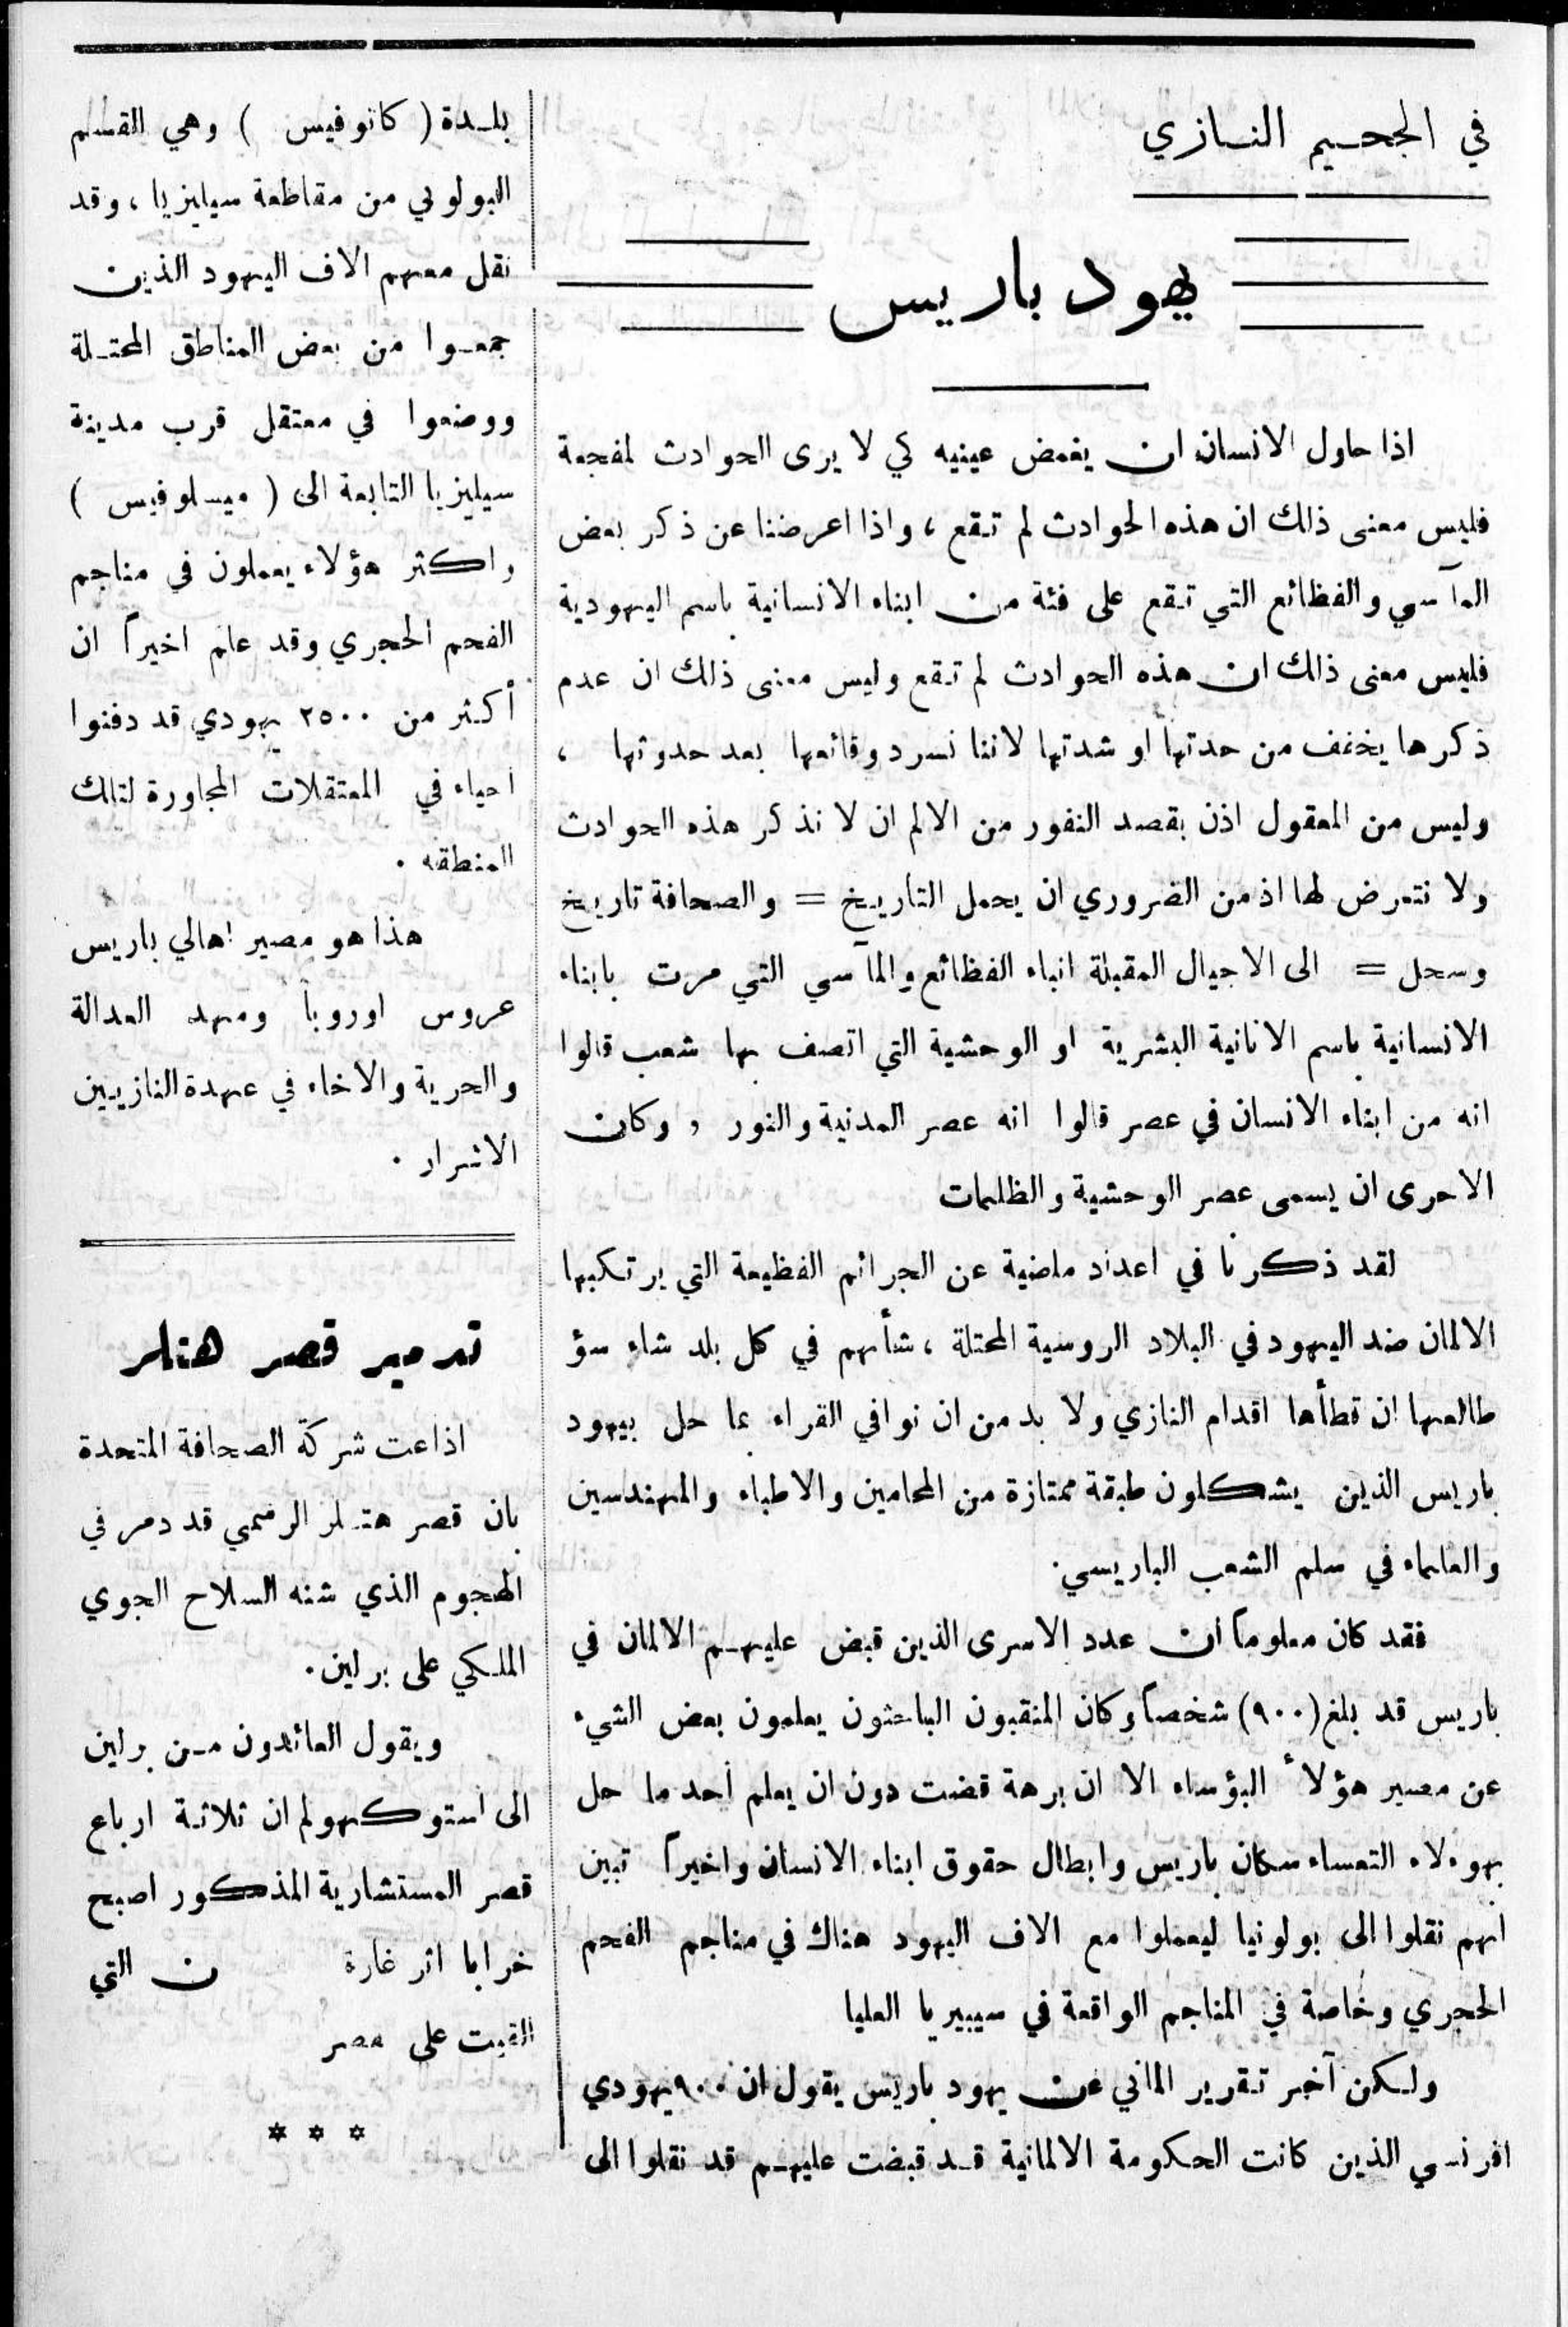 في الجحيم النازي
يهود باريس
اذا حاول الانسان ان يغمض عينيه كي لا يرى الحوادث لمفجعة
فليس معنى ذلك ان هذه الحوادث لم تقع ، واذا اعرضنا عن ذكر بعض
المآسي والفظائع التي تقع على فئة من ابناء الانسانية باسم اليهودية
فليس معنى ذلك ان هذه الحوادث لم تقع وليس معنى ذلك ان عدم
ذكرها يخفف من حدتها او شدتها لاننا نسرد وقائعها بعد حدوثها ،
وليس من المعقول اذن بقصد النفور من الالم ان لا نذكر هذه الحوادث
ولا نتعرض لها اذ من الضروري ان يحمل التاريخ = والصحافة تاريخ
وسجل = الى الاجيال المقبلة انباء الفظائع والمآسي التي مرت بابناء
الانسانية باسم الانانية البشرية او الوحشية التي اتصف بها شعب قالوا
انه من ابناء الانسان في عصر قالوا انه عصر المدنية والنور ، وكان
الاحرى ان يسمى عصر الوحشية والظلمات
لقد ذكرنا في اعداد ماضية عن الجرائم الفظيعة التي يرتكبها
الالمان ضد اليهود في البلاد الروسية المحتلة ، شأنهم في كل بلد شاء سؤ
طالعها ان تطأها اقدام النازي ولا بد من ان نوافي القراء بما حل بيهود
باريس الذين يشكلون طبقة ممتازة من المحامين والاطباء والمهندسين
والعلماء في سلم الشعب الباريسي.
فقد كان معلوماً ان عدد الاسرى الذين قبض عليهم الالمان في
باريس قد بلغ (٩٠٠) شخصاً وكان المنقبون الباحثون يعلمون بعض الشيء
عن مصير هؤلأ البؤساء الا ان برهة قضت دون ان يعلم أحد ما حل
بهوءلاء التعساء سكان باريس وابطال حقوق ابناء الانسان واخيراً تبين
انهم نقلوا الى بولونيا ليعملوا مع الاف اليهود هناك في مناجم الفحم
الحجري وخاصة في المناجم الواقعة في سيبيريا العليا
ولكن آخر تقرير الماني عن يهود باريس يقول ان ٩٠٠ يهودي
افرنسي الذين كانت الحكومة الالمانية قد قبضت عليهم قد نقلوا الى
بلدة ( كاتوفيس ) وهي القسم
البولوني من مقاطعة سيليزيا ، وقد
نقل معهم الاف اليهود الذين
جمعوا من بعض المناطق المحتلة
ووضعوا في معتقل قرب مدينة
سيليزيا التابعة الى ( ميسلوفيس )
واكثر هؤلاء يعملون في مناجم
الفحم الحجري وقد علم اخيراً ان
أكثر من ٢٥٠٠ يهودي قد دفنوا
احياء في المعتقلات المجاورة لتلك
المنطقه .
هذا هو مصير اهالي باريس
عروس اوروبا ومهد العدالة
والحرية والاخاء في عهدة النازيين
الاشرار .
تدمير قصر هتلر
اذاعت شركة الصحافة المتحدة
بان قصر هتلر الرسمي قد دمر في
الهجوم الذي شنه السلاح الجوي
الملكي على برلين.
ويقول العائدون من برلين
الى استوكهولم ان ثلاثة ارباع
قصر المستشارية المذكور اصبح
خرابا اثر غارة ن التي
القيت على
* * *